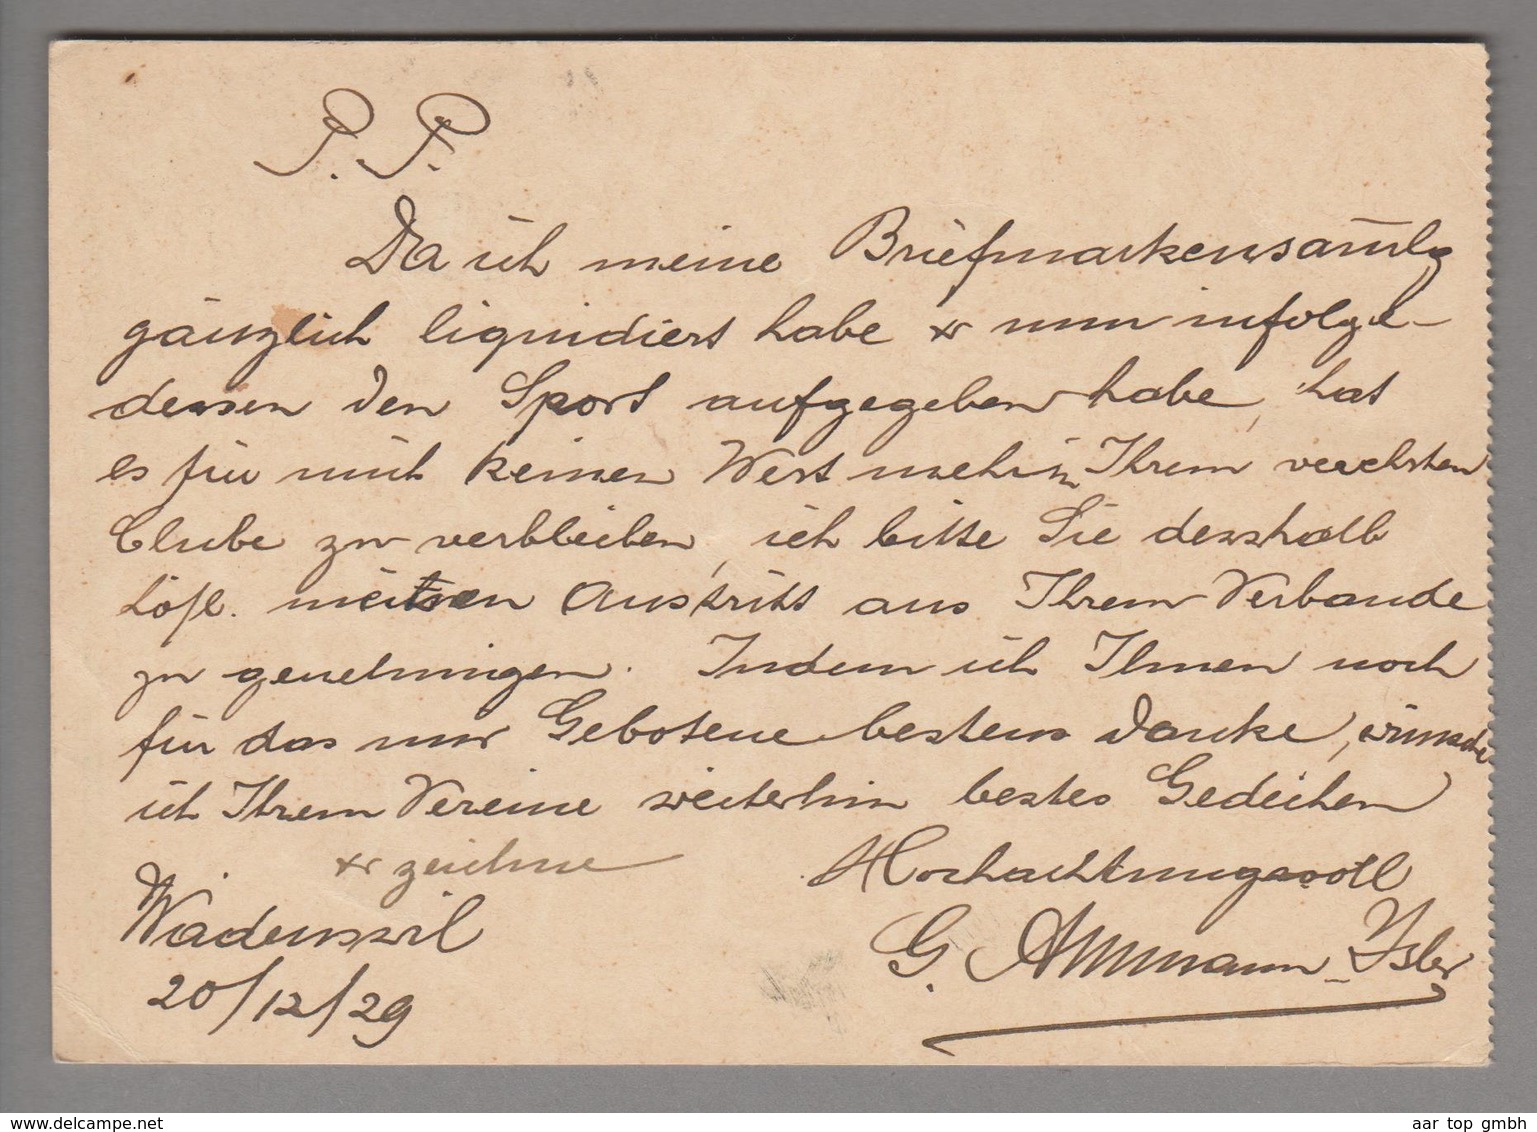 P. P.
Da ich meine Briefmarkensam̄lg
gänzlich liquidiert habe & nun infolge-
dessen den Sport aufgegeben habe, hat
es für mich keinen Wert mehr in Ihrem verehrten
Clube zu verbleiben, ich bitte Sie desshalb
höfl. meinen Austritt aus Ihrem Verbande
zu genehmigen. Indem ich Ihnen noch
für das mir Gebotene bestens danke, wünsche
ich Ihrem Vereine weiterhin bestes Gedeihen
& zeichne Hochachtungsvoll
Wädenswil G. Ammann-Isler
20/12/29
www.delcampe.net aar top gmbh